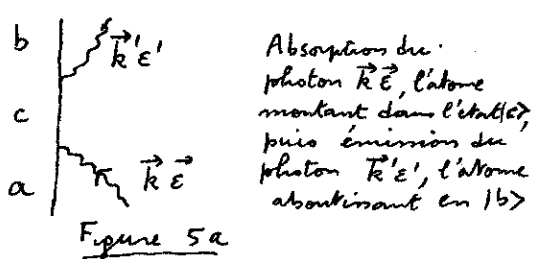 b
k⃗'ε'
c
k⃗ ε⃗
a
Figure 5a
Absorption du
photon k⃗ε⃗, l'atome
montant dans l'état|c>,
puis émission du
photon k⃗'ε', l'atome
aboutissant en |b>